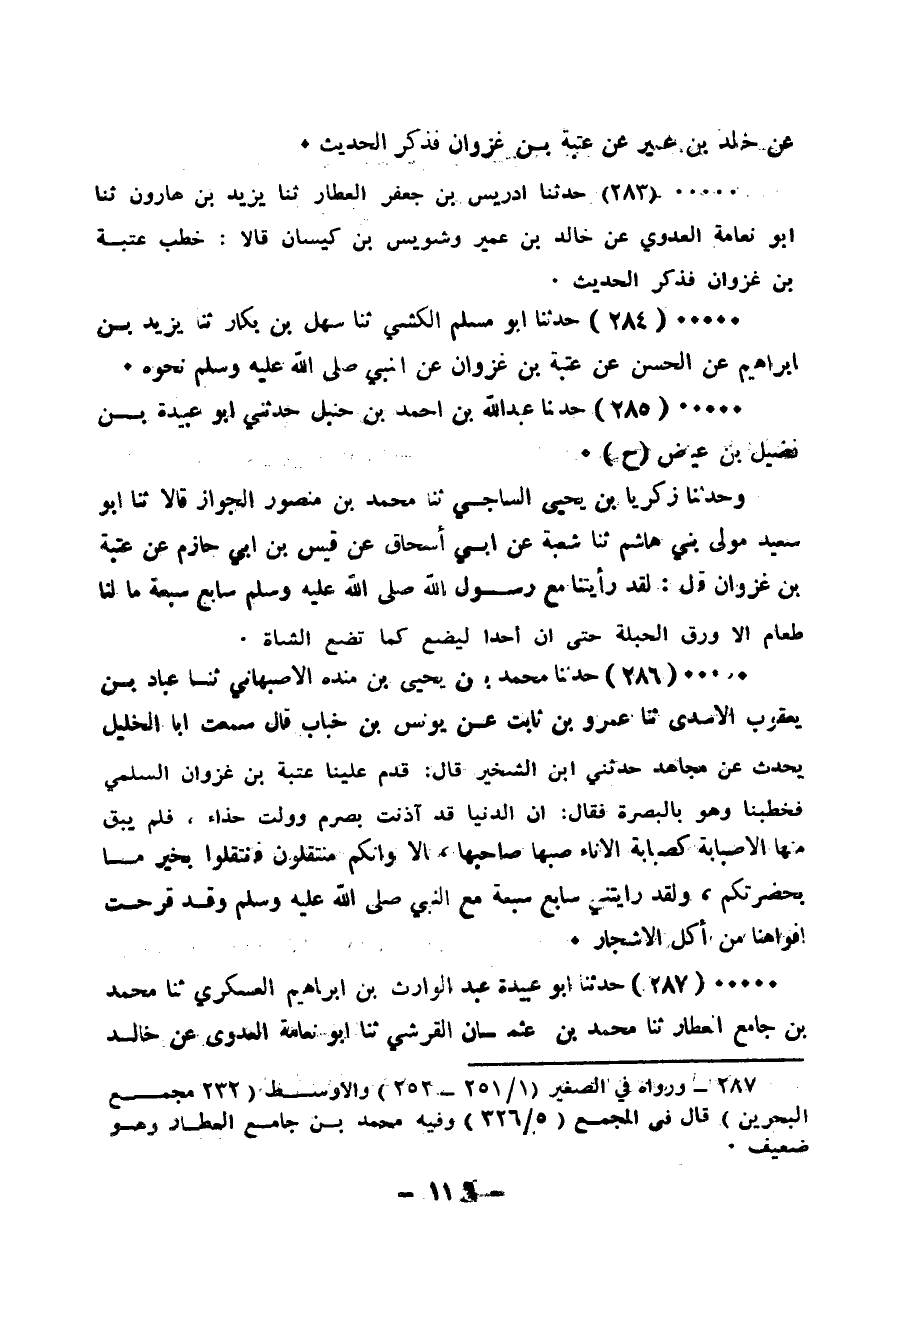 عن خالد بن عمير عن عتبة بـن غزوان فذكر الحديث ٠
٠٠٠٠٠ (٢٨٣) حدثنا ادريس بن جعفر العطار ثنا يزيد بن هارون ثنا
ابو نعامة العدوي عن خالد بن عمير وشويس بن كيسان قالا : خطب عتبـة
بن غزوان فذكر الحديث ٠
٠٠٠٠٠ ( ٢٨٤ ) حدثنا ابو مسلم الكشي ثنا سهل بن بكار ثنا يزيد بـن
ابراهيم عن الحسن عن عتبة بن غزوان عن النبي صلى الله عليه وسلم نحوه ٠
٠٠٠٠٠ ( ٢٨٥ ) حدثنا عبدالله بن احمد بن حنبل حدثني ابو عبيدة بــن
فضيل بن عياض (ح) ٠
وحدثنا زكريا بن يحيى الساجـي ثنا محمد بن منصور الجواز قالا ثنا ابو
سعيد مولى بني هاشم ثنا شعبة عن ابـي أسحاق عن قيس بن ابي حازم عن عتبة
بن غزوان قال : لقد رأيتنا مع رســول الله صلى الله عليه وسلم سابع سبعة ما لنا
طعام الا ورق الحبلة حتى ان أحدا ليضع كما تضع الشاة ٠
٠٠٠٠٠ ( ٢٨٦ ) حدثنا محمد بن يحيى بن منده الاصبهاني ثنـا عباد بـن
يعقوب الاسدى ثنا عمرو بن ثابت عـن يونس بن خباب قال سمعت ابا الخليل
يحدث عن مجاهد حدثني ابن الشخير قال: قدم علينا عتبة بن غزوان السلمي
فخطبنا وهو بالبصرة فقال: ان الدنيا قد آذنت بصرم وولت حذاء ، فلم يبق
منها الاصبابة كصبابة الاناء صبها صاحبها ، الا وانكم منتقلون فنتقلوا بخير مـا
بحضرتكم ، ولقد رايتني سابع سبعة مع النبي صلى الله عليه وسلم وقـد قرحـت
افواهنا من أكل الاشجار ٠
٠٠٠٠٠ ( ٢٨٧ ) حدثنا ابو عبيدة عبد الوارث بن ابراهيم العسكري ثنا محمد
بن جامع العطار ثنا محمد بن عثمـان القرشي ثنا ابو نعامة العدوى عن خالـد
٢٨٧ ـ ورواه في الصغير (١/ ٢٥١ ـ ٢٥٢ ) والاوسـط ( ٢٣٢ مجمـع
البحرين ) قال في المجمع ( ٥/ ٣٢٦ ) وفيه محمد بـن جامـع العطـار وهـو
ضعيف ٠